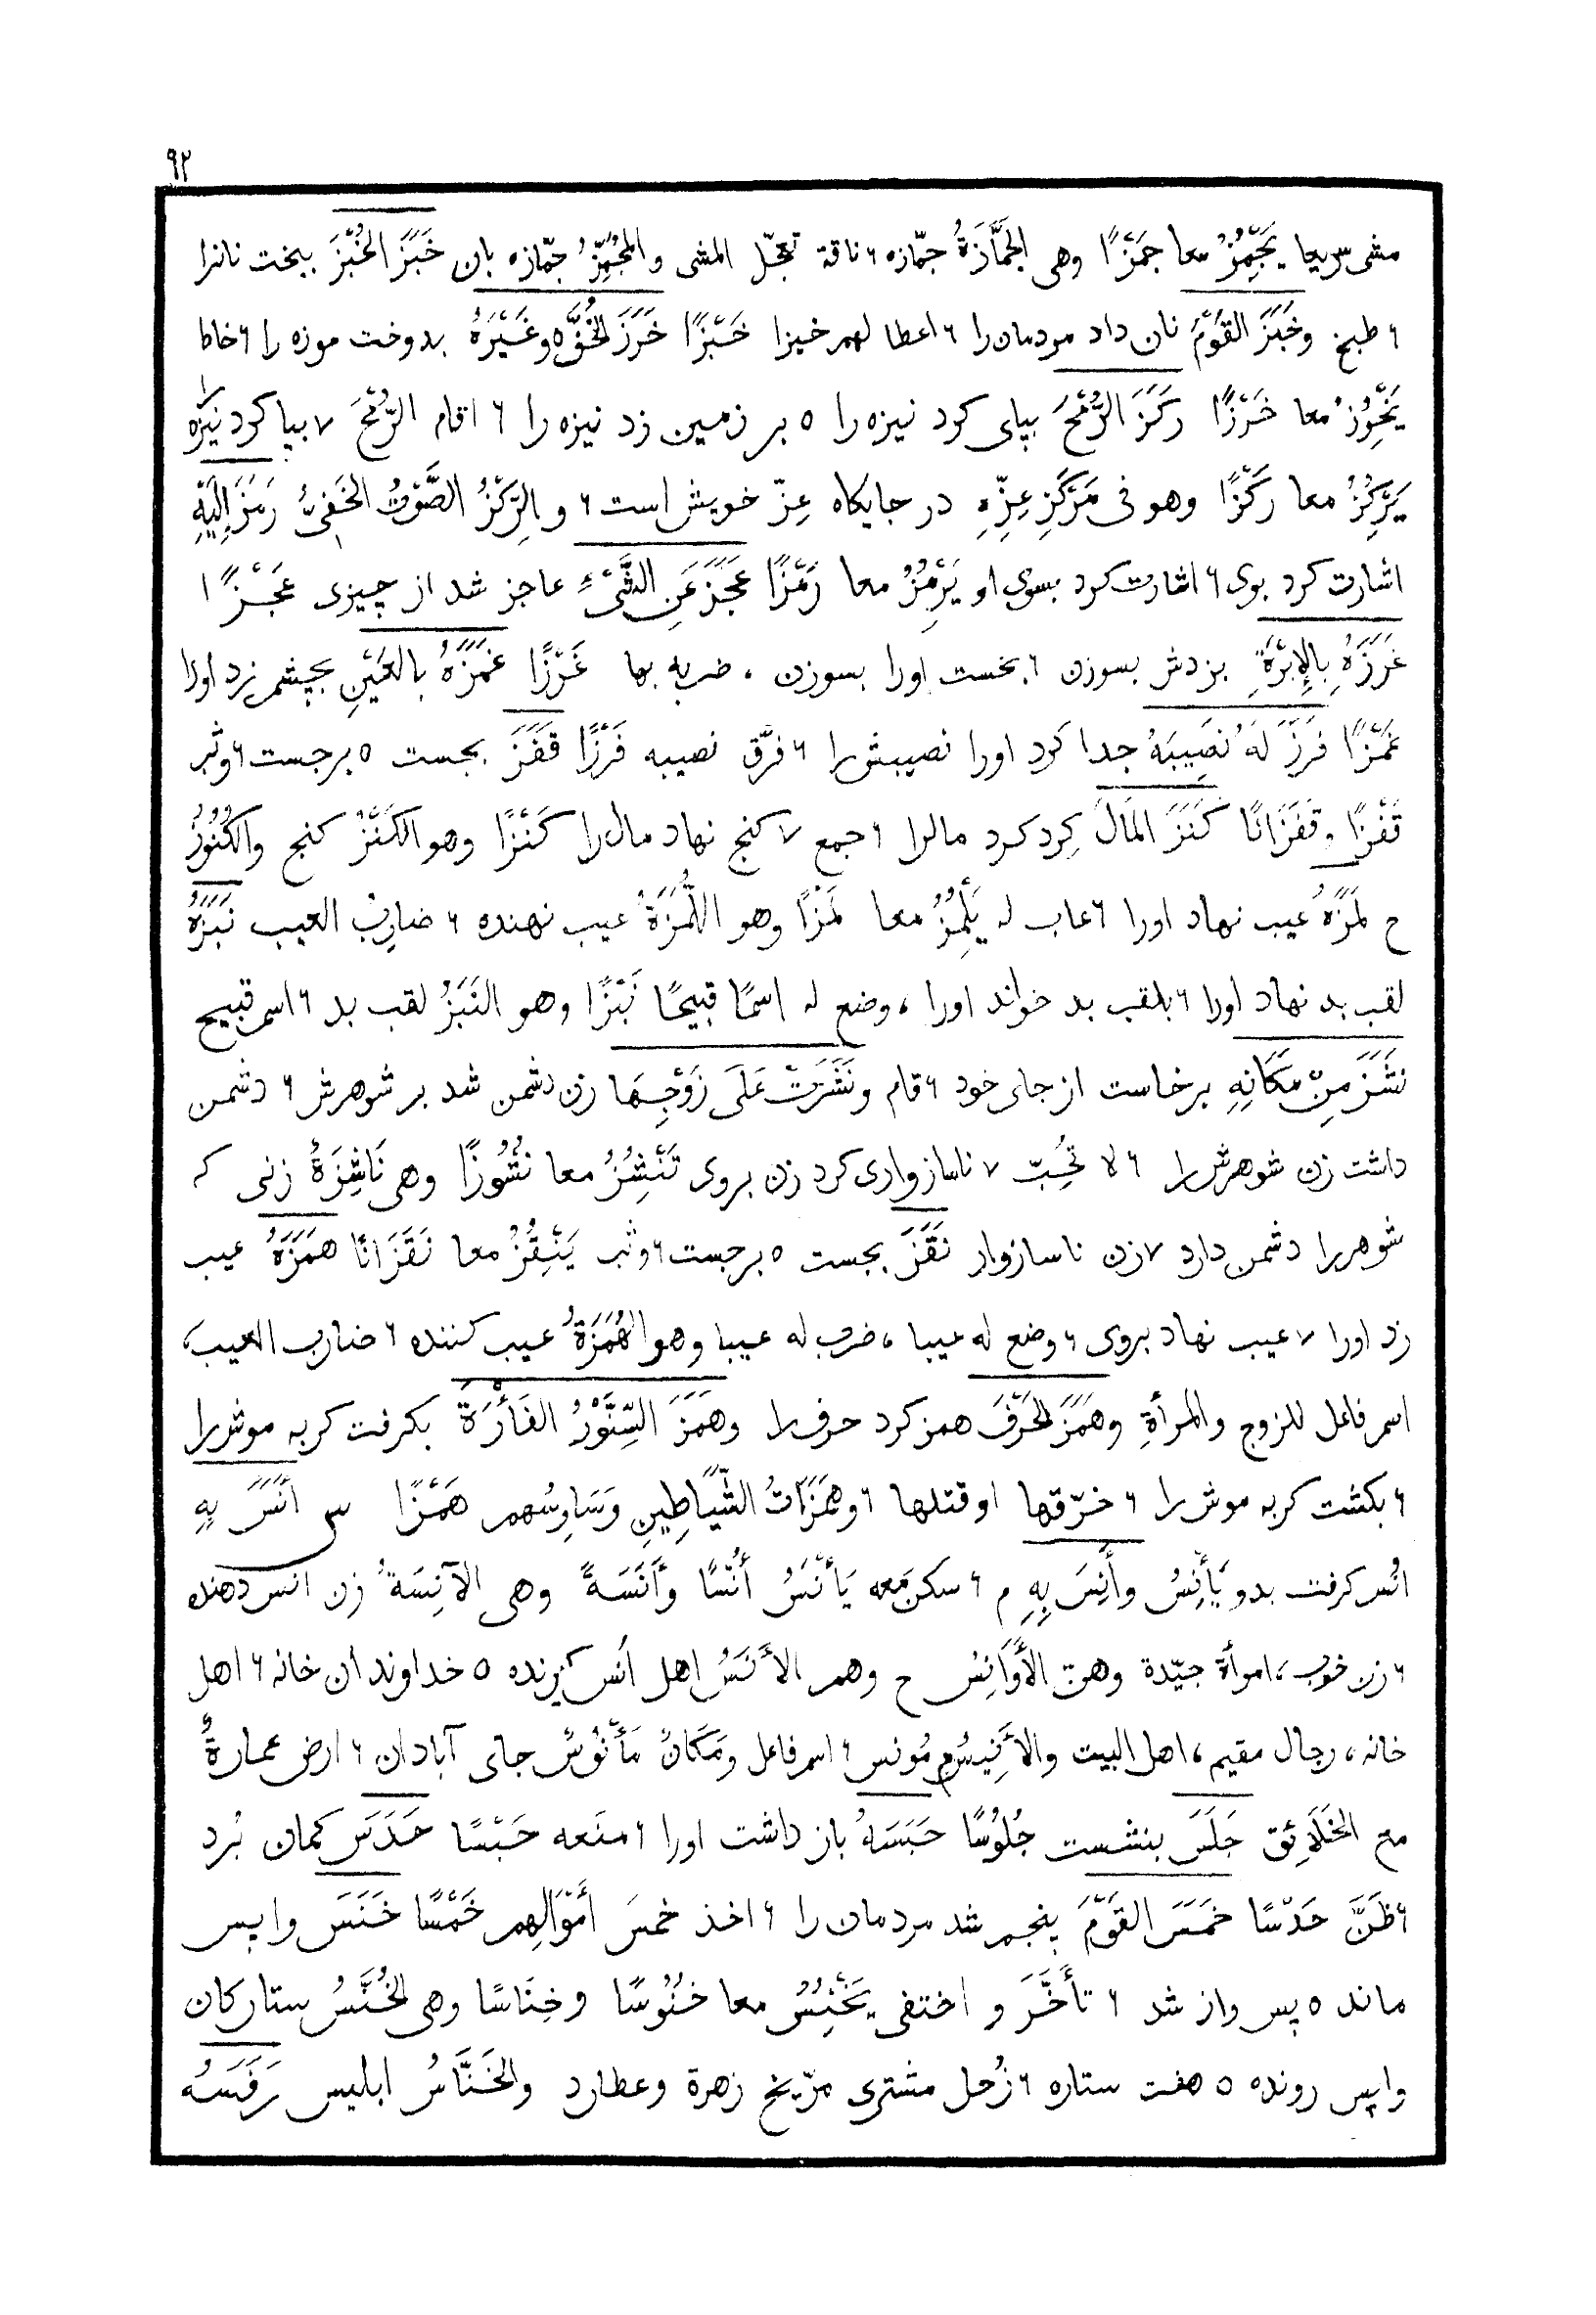 ٩٢
مشی سریعا یَجْمِزُ معا جَمْزًا وهی الجَمَّازَةُ جمّازه ٦ ناقة تعجّل المشی والمُجَمِّزُ جمّازه بان خَبَزَ الخُبْزَ ببخت نانرا
٦ طبخ وخَبَزَ القَوْمَ نان داد مردمان را ٦ اعطا لهم خبزا خَبْزًا خَرَزَ الخُفَّ ٥ وغَیْرَهُ بدوخت موزه را ٦ خاط
یَخْرِزُ معا خَرْزًا رَکَزَ الرُّمْحَ بپای کرد نیزه را ٥ بر زمین زد نیزه را ٦ اقام الرُّمْحَ ٧ بپا کرد نیزه را
یَرْکِزُ معا رَکْزًا وهو فی مَرْکَزِ عِزِّهِ در جایکاه عِزّ خویش است ٦ والرِّکْزُ الصَّوْتُ الخَفِیُّ رَمَزَ إِلَیْهِ
اشارت کرد بوی ٦ اشارت کرد بسوی او یَرْمِزُ معا رَمْزًا عَجَزَ عَنِ الشَّیْءِ عاجز شد از چیزی عَجْزًا
غَرَزَهُ بِالإِبْرَةِ بزدش بسوزن ٦ بخست اورا بسوزن ، ضربه بها غَرْزًا غَمَزَهُ بِالعَیْنِ بچشم زد اورا
غَمْزًا فَرَزَ لَهُ نَصِیبَهُ جدا کرد اورا نصیبش را ٦ فرّق نصیبه فَرْزًا قَفَزَ بجست ٥ برجست ٦ وثب
قَفْزًا وقَفَزَانًا کَنَزَ المَالَ کِرد کرد مالرا ٦ جمع ٧ کنج نهاد مال را کَنْزًا وهو الکَنْزُ کنج والکُنُوزُ
ح لَمَزَهُ عیب نهاد اورا ٦ عاب له یَلْمِزُ معا لَمْزًا وهو اللُّمَزَةُ عیب نهنده ٦ ضارب العیب نَبَزَهُ
لقب بد نهاد اورا ٦ بلقب بد خواند اورا ، وضع له اسمًا قبیحًا نَبْزًا وهو النَبَزُ لقب بد ٦ اسم قبیح
نَشَزَ مِنْ مَکَانِهِ برخاست از جای خود ٦ قام ونَشَزَتْ عَلَی زَوْجِهَا زن دشمن شد بر شوهرش ٦ دشمن
داشت زن شوهرش را ٦ لا تُحِبّ ٧ ناسازواری کرد زن بروی تَنْشِزُ معا نُشُوزًا وهی نَاشِزَةُ زنی که
شوهررا دشمن دارد ٧ زن ناسازوار نَقَزَ بجست ٥ برجست ٦ وثب یَنْقِزُ معا نَقَزَانًا هَمَزَهُ عیب
زد اورا ٧ عیب نهاد بروی ٦ وضع له عیبا ، ضرب له عیبا وهو الهُمَزَةُ عیب کننده ٦ ضارب العیب ،
اسم فاعل للزوج والمرأةِ وهَمَزَ الحَرْفَ همز کرد حرف را وهَمَزَ السِّنَّوْرُ الفَأْرَةَ بکرفت کربه موش را
٦ بکشت کربه موش را ٦ خرّقها او قتلها ٦ وهَمَزَاتُ الشَّیَاطِینِ وَسَاوِسُهم هَمْزًا س أَنَسَ بِهِ
انُس کرفت بدو یَأْنِسُ وأَنِسَ بِهِ م ٦ سکن مَعه یَأْنَسُ أُنْسًا وأَنَسَةً وهی الآنِسَةُ زن انس دهنده
٦ زن خوب ، امرأة جیّدة وهنّ الأَوَانِسُ ح وهم الأَنَسُ اهل اُنس کیرنده ٥ خداوندان خانه ٦ اهل
خانه ، رجال مقیم ، اهل البیت والأَنِیسُ م مُونس ٦ اسم فاعل ومَکَانٌ مَأْنُوسٌ جای آبادان ٦ ارض عمارةٌ
مع الخَلَائِق جَلَسَ بنشست جُلُوسًا حَبَسَهُ باز داشت اورا ٦ منَعه حَبْسًا حَدَسَ کمان بُرد
٦ ظَنَّ حَدْسًا خَمَسَ القَوْمَ پنجم شد مردمان را ٦ اخذ خمسَ أَمْوَالِهم خَمْسًا خَنَسَ واپس
ماند ٥ پس واز شد ٦ تأَخَّرَ و اختفی یَخْنِسُ معا خُنُوسًا وخِنَاسًا وهی الخُنَّسُ ستارکان
واپس رونده ٥ هفت ستاره ٦ زُحل مشتری مرّیخ زهرة وعطارد والخَنَّاسُ ابلیس رَفَسَهُ